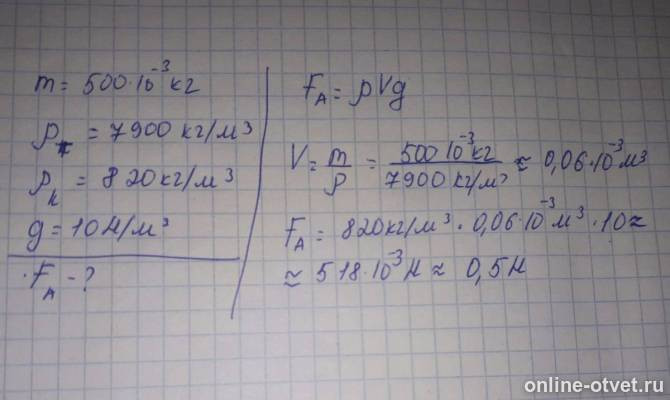 m = 500·10⁻³ кг
ρт = 7900 кг/м³
ρк = 820 кг/м³
g = 10 Н/м³
FА - ?
FА = ρVg
V = m/ρ = 500 10⁻³ кг / 7900 кг/м³ ≈ 0,06·10⁻³ м³
FА = 820 кг/м³ · 0,06·10⁻³ м³ · 10 ≈
≈ 518·10⁻³ Н ≈ 0,5 Н
online-otvet.ru